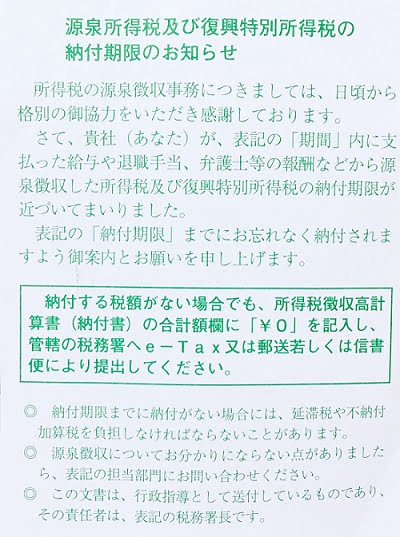 源泉所得税及び復興特別所得税の
納付期限のお知らせ
所得税の源泉徴収事務につきましては、日頃から
格別の御協力をいただき感謝しております。
さて、貴社（あなた）が、表記の「期間」内に支
払った給与や退職手当、弁護士等の報酬などから源
泉徴収した所得税及び復興特別所得税の納付期限が
近づいてまいりました。
表記の「納付期限」までにお忘れなく納付されま
すよう御案内とお願いを申し上げます。
納付する税額がない場合でも、所得税徴収高計
算書（納付書）の合計額欄に「￥０」を記入し、
管轄の税務署へｅ－Ｔａｘ又は郵送若しくは信書
便により提出してください。
◎ 納付期限までに納付がない場合には、延滞税や不納付
加算税を負担しなければならないことがあります。
◎ 源泉徴収についてお分かりにならない点がありました
ら、表記の担当部門にお問い合わせください。
◎ この文書は、行政指導として送付しているものであり、
その責任者は、表記の税務署長です。